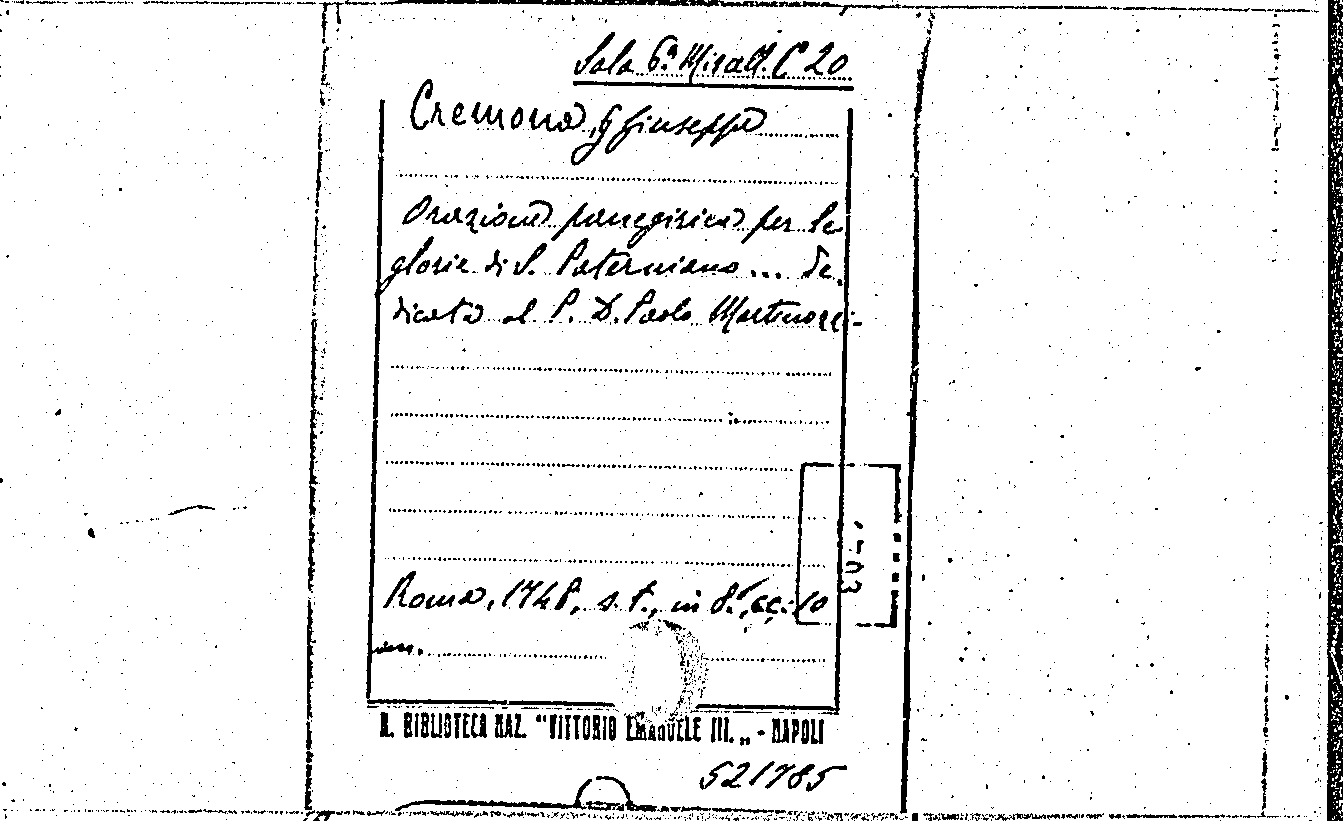 Sala 6ª Miscell. C 20
Cremona, Giuseppe
Orazione panegirica per le
glorie di S. Paterniano... de
dicata al P. D. Paolo Martinozzi-
Roma, 1748, s. t., in 8.°, cc. 10
nn.
R. BIBLIOTECA NAZ. "VITTORIO EMANUELE III.„ - NAPOLI
521785